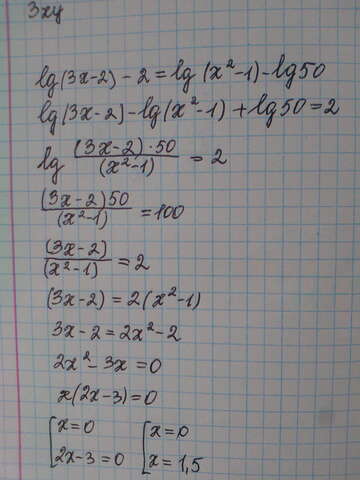 3xy
lg(3x-2)-2=lg(x²-1)-lg50
lg(3x-2)-lg(x²-1)+lg50=2
lg (3x-2)·50/(x²-1) = 2
(3x-2)50/(x²-1) = 100
(3x-2)/(x²-1) = 2
(3x-2)=2(x²-1)
3x-2=2x²-2
2x²-3x=0
x(2x-3)=0
[x=0 [x=0
[2x-3=0 [x=1,5